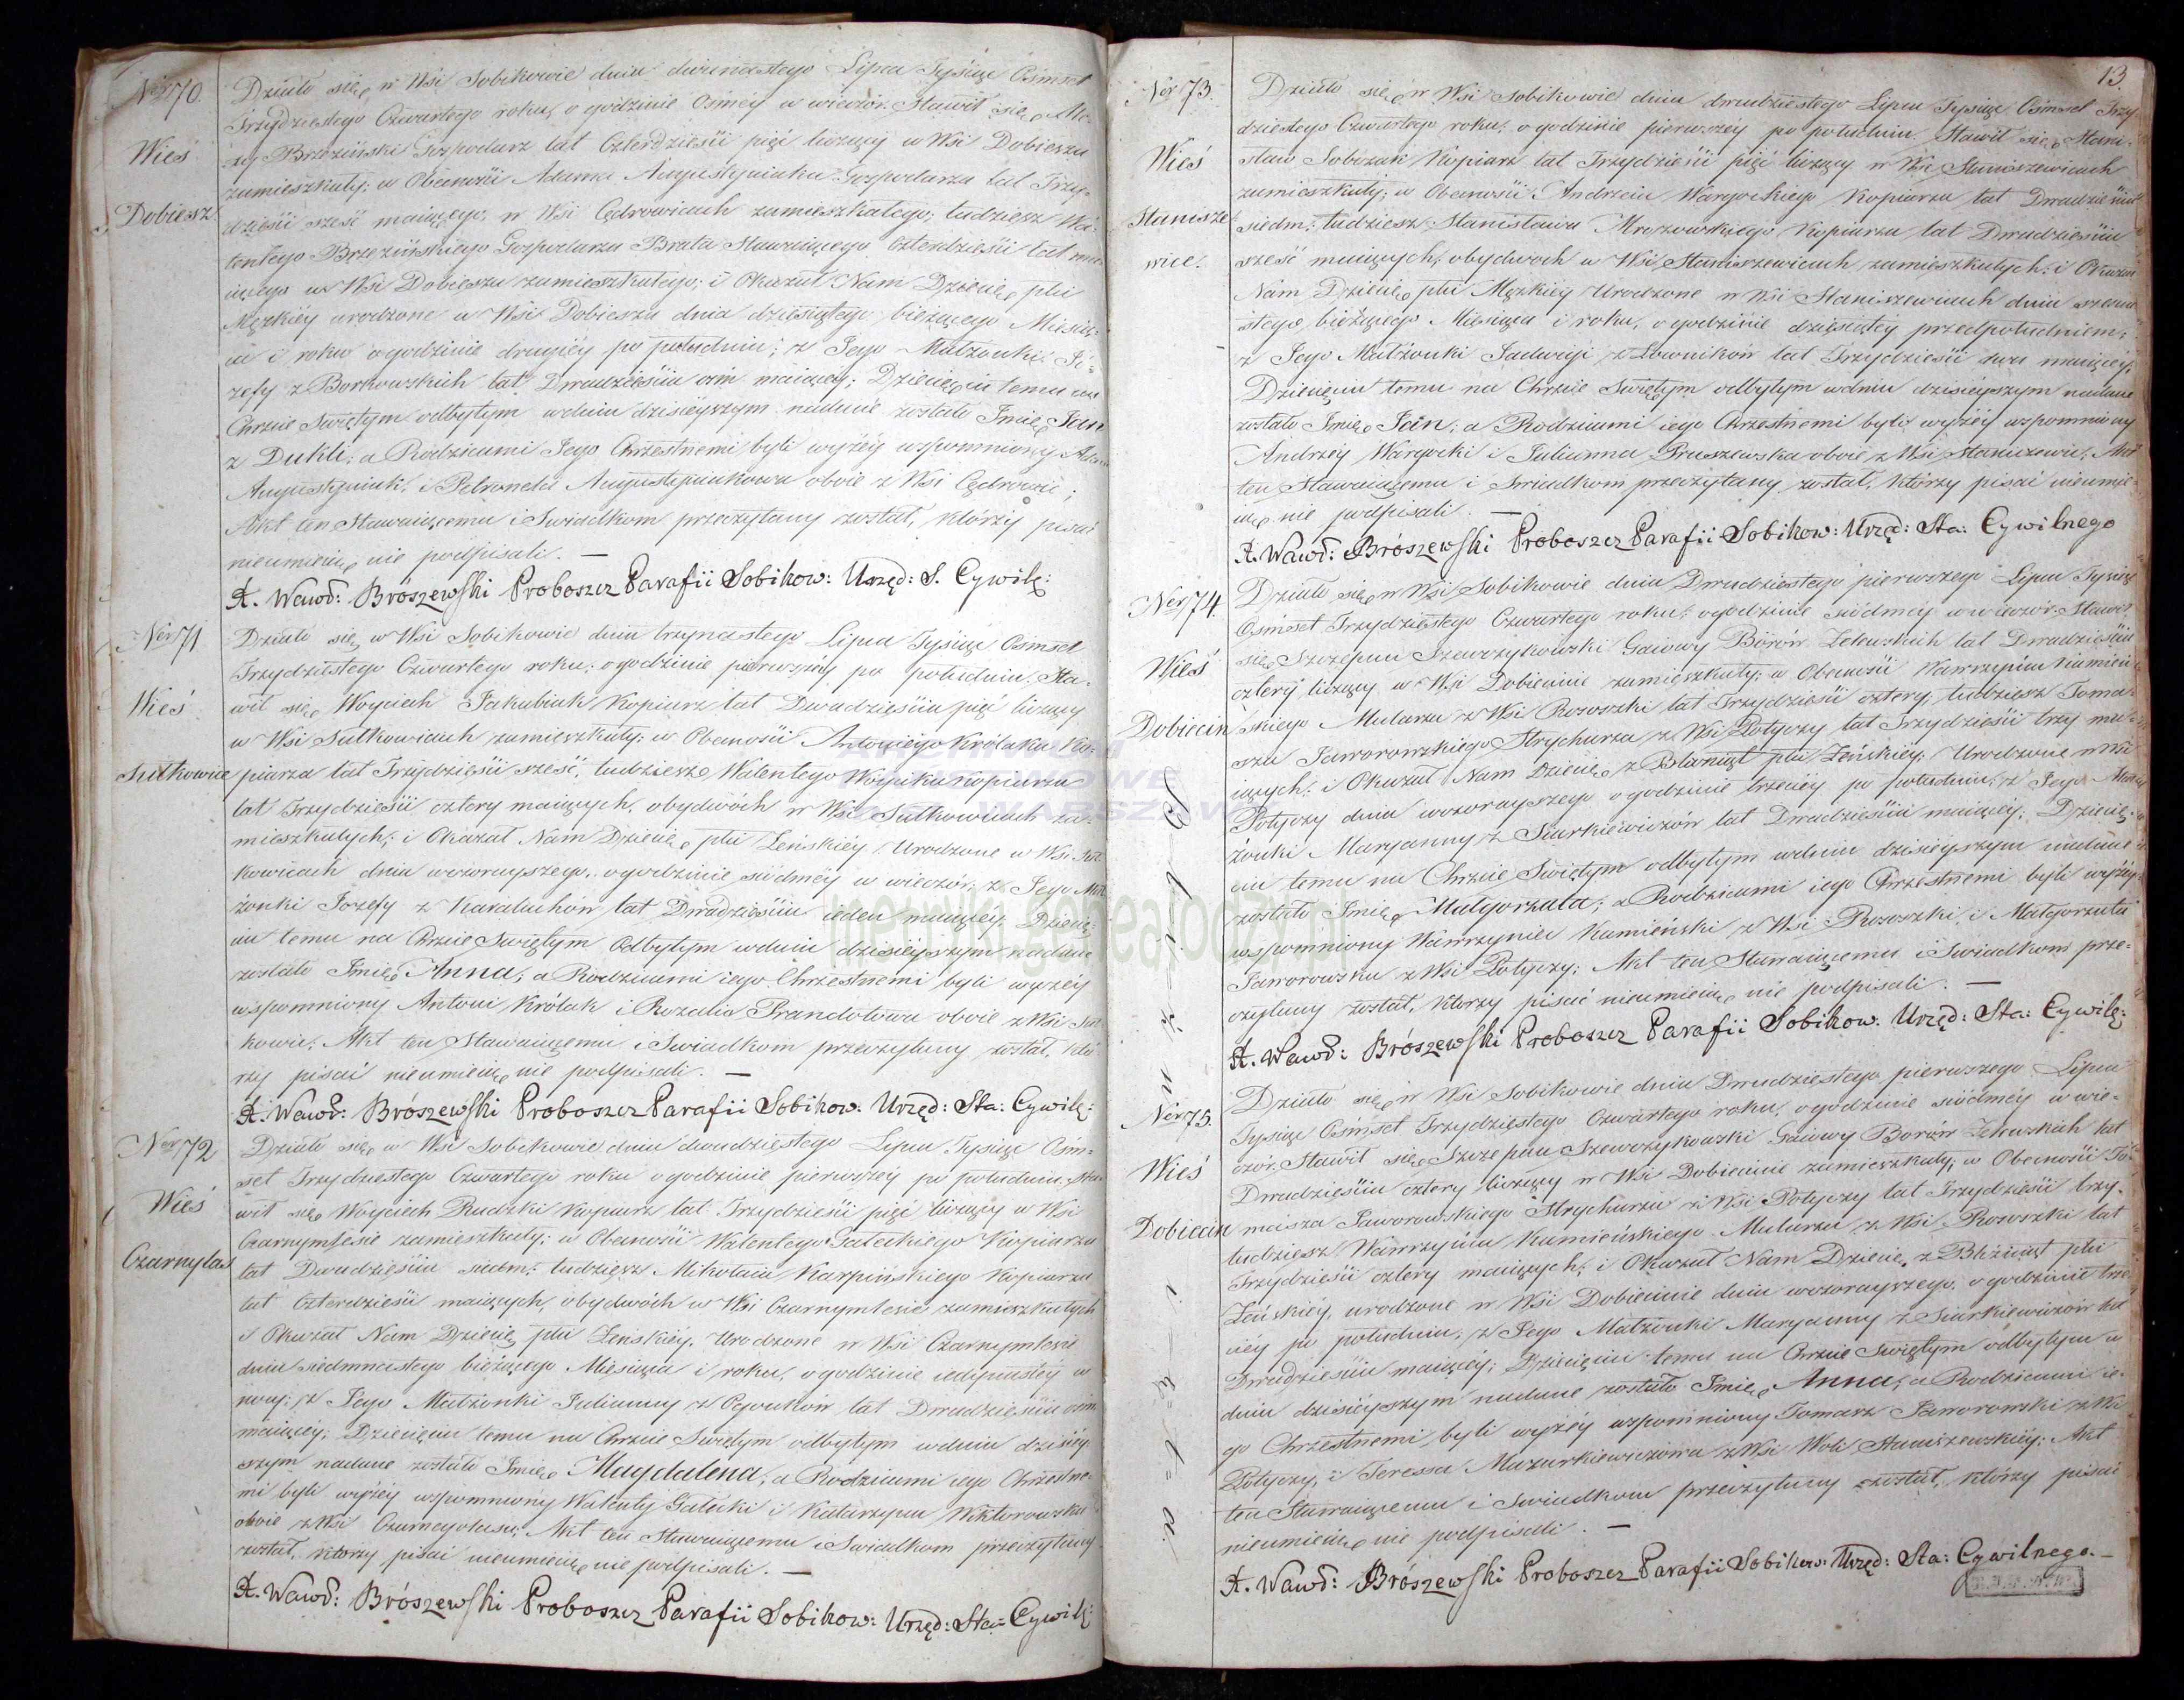 Ner 70.
Wieś
Dobiesz.
Działo się w Wsi Sobikowie dnia dwunastego Lipca Tysiąc Ośmset
Trzydziestego Czwartego roku, o godzinie ósmej w wieczór. Stawił się
Brzeziński Gospodarz lat Czterdzieści pięć liczący w Wsi Dobieszu
zamieszkały; w Obecności Adama Augustyniaka Gospodarza lat Trzy-
dzieści sześć maiącego, w Wsi Cędrowicach zamieszkałego; tudzież Wa-
lentego Brzezińskiego Gospodarza Brata Stawaiącego Czterdzieści lat ma-
iącego w Wsi Dobieszu zamieszkałego; i Okazał Nam Dziecię płci
Męzkiéy urodzone w Wsi Dobieszu dnia dziesiątego bieżącego Miesią-
ca i roku o godzinie drugiéy po południu; z Jego Małżonki Jó-
zefy z Borkowskich lat Dwadzieścia ośm maiącéy; Dziecięciu temu na
Chrzcie Swiętym odbytym w dniu dzisiéyszym nadane zostało Imię Jan
z Dukli; a Rodzicami Jego Chrzestnemi byli wyżéy wspomniony Adam
Augustyniak, i Petronela Augustyniakowa oboie z Wsi Cędrowic;
Akt ten Stawaiącemu i Swiadkom przeczytany został, którzy pisać
nieumieią nie podpisali. —
X. Waw: Brószewski Proboszcz Parafii Sobikow: Urzęd: S. Cywilę:
Ner 71
Wieś
Sułkowice
Działo się w Wsi Sobikowie dnia trzynastego Lipca Tysiąc Ośmset
Trzydziestego Czwartego roku; o godzinie pierwszéy po południu. Sta-
wił się Woyciech Jakubiak Kopiarz lat Dwadzieścia pięć liczący
w Wsi Sułkowicach zamieszkały; w Obecności Antoniego Królaka Ko-
piarza lat Trzydzieści sześć, tudzież Walentego Kopiarza
lat Trzydzieści cztery maiących, obydwóch w Wsi Sułkowicach za-
mieszkałych; i Okazał Nam Dziecię płci Żeńskiéy Urodzone w Wsi Suł-
kowicach dnia wczorayszego, o godzinie siódméy w wieczór, z Jego Mał-
żonki Jozefy z Karaluchów lat Dwadzieścia ieden maiącéy; Dziecię-
ciu temu na Chrzcie Swiętym Odbytym w dniu dzisiéyszym nadane
zostało Imię Anna; a Rodzicami iego Chrzestnemi byli wyżéy
wspomniony Antoni Królak i Rozalia Prandotowa oboie z Wsi Suł-
kowic; Akt ten Stawaiącemu i Swiadkom przeczytany został, któ-
rzy pisać nieumieią nie podpisali. —
X. Waw: Brószewski Proboszcz Parafii Sobikow: Urzęd: Sta: Cywilę:
Ner 72
Wieś
Czarnylas
Działo się w Wsi Sobikowie dnia dwudziestego Lipca Tysiąc Ośm-
set Trzydziestego Czwartego roku o godzinie pierwszéy po południu, Sta-
wił się Woyciech Rudzki Kopiarz lat Trzydzieści pięć liczący w Wsi
Czarnymlesie zamieszkały; w Obecności Walentego Gałeckiego Kopiarza
lat Dwadzieścia siedm; tudzież Mikołaia Karpińskiego Kopiarza
lat Czterdzieści maiących, obydwóch w Wsi Czarnymlesie zamieszkałych
i Okazał Nam Dziecię płci Żeńskiéy, Urodzone w Wsi Czarnymlesie
dnia siedmnastego bieżącego Miesiąca i roku, o godzinie iedynastéy w
nocy; z Jego Małżonki Julianny z lat Dwadzieścia ośm
maiącéy; Dziecięciu temu na Chrzcie Swiętym odbytym w dniu dzisiéy-
szym nadane zostało Imię Magdalena, a Rodzicami iego Chrzestne-
mi byli wyżéy wspomniony Walenty Gałecki i Katarzyna Wiktorowska
oboie z Wsi Czarnegolasu; Akt ten Stawaiącemu i Swiadkom przeczytany
został, którzy pisać nieumieią nie podpisali. —
X. Waw: Brószewski Proboszcz Parafii Sobikow: Urzęd: Sta: Cywilę:
13.
Ner 73.
Wieś
Stanisze-
wice.
Działo się w Wsi Sobikowie dnia dwudziestego Lipca Tysiąc Ośmset Trzy-
dziestego Czwartego roku, o godzinie pierwszéy po południu, Stawił się Stani-
sław Sobczak Kopiarz lat Trzydzieści pięć liczący w Wsi Staniszewicach
zamieszkały; w Obecności Andrzeia Wargockiego Kopiarza lat Dwadzieścia
siedm; tudzież Stanisława Mrozowskiego Kopiarza lat Dwadzieścia
sześć maiących, obydwóch w Wsi Staniszewicach zamieszkałych; i Okazał
Nam Dziecię płci Męzkiéy Urodzone w Wsi Staniszewicach dnia szesna-
stego bieżącego Miesiąca i roku, o godzinie dziesiątéy przedpołudniem;
z Jego Małżonki Jadwigi z lat Trzydzieści dwa maiącéy;
Dziecięciu temu na Chrzcie Swiętym odbytym w dniu dzisiéyszym nadane
zostało Imię Jan; a Rodzicami iego Chrzestnemi byli wyżéy wspomniony
Andrzéy Wargocki i Julianna Pruszewska oboie z Wsi Staniszewic, Akt
ten Stawaiącemu i Swiadkom przeczytany został, którzy pisać nieumie-
ią nie podpisali. —
X. Waw: Brószewski Proboszcz Parafii Sobikow: Urzęd: Sta: Cywilnego
Ner 74.
Wieś
Dobiecin
Działo się w Wsi Sobikowie dnia Dwudziestego pierwszego Lipca Tysiąc
Ośmset Trzydziestego Czwartego roku; o godzinie siódméy w wieczór. Stawił
się Szczepan Szewczykowski Gaiowy Borów lat Dwadzieścia
cztery liczący w Wsi Dobiecinie zamieszkały; w Obecności Wawrzyńca Kamień-
skiego Mularza z Wsi Rososzki lat Trzydzieści cztery, tudzież Toma-
sza Jaworowskiego Strycharza z Wsi Potyczy lat Trzydzieści trzy ma-
iących; i Okazał Nam Dziecię z Blizniąt płci Żeńskiéy, Urodzone w Wsi
Potyczy dnia wczorayszego o godzinie trzeciéy po południu; z Jego Mał-
żonki Maryanny z Siurkiewiczów lat Dwadzieścia maiącéy; Dziecię-
ciu temu na Chrzcie Swiętym odbytym w dniu dzisiéyszym nadane
zostało Imię Małgorzata; a Rodzicami iego Chrzestnemi byli wyżéy
wspomniony Wawrzyniec Kamieński z Wsi Rososzki, i Małgorzata
Jaworowska z Wsi Potyczy; Akt ten Stawaiącemu i Swiadkom prze-
czytany został, którzy pisać nieumieią nie podpisali. —
X. Waw: Brószewski Proboszcz Parafii Sobikow: Urzęd: Sta: Cywilę:
B l i ź n i ę t a.
Ner 75.
Wieś
Dobiecin
Działo się w Wsi Sobikowie dnia Dwudziestego pierwszego Lipca
Tysiąc Ośmset Trzydziestego Czwartego roku, o godzinie siódméy w wie-
czór, Stawił się Szczepan Szewczykowski Gaiowy Borów lat
Dwadzieścia cztery liczący w Wsi Dobiecinie zamieszkały; w Obecności To-
masza Jaworowskiego Strycharza z Wsi Potyczy lat Trzydzieści trzy,
tudzież Wawrzyńca Kamieńskiego Mularza z Wsi Rososzki lat
Trzydzieści cztery maiących; i Okazał Nam Dziecię z Bliźniąt płci
Żeńskiéy, urodzone w Wsi Dobiecinie dnia wczorayszego, o godzinie trze-
ciéy po południu, z Jego Małżonki Maryanny z Siurkiewiczów lat
Dwadzieścia maiącéy; Dziecięciu temu na Chrzcie Swiętym odbytym w
dniu dzisiéyszym nadane zostało Imię Anna; a Rodzicami ie-
go Chrzestnemi byli wyżéy wspomniony Tomasz Jaworowski z Wsi
Potyczy, i Teressa Mazurkiewiczowa z Wsi Woli Staniszewskiéy; Akt
ten Stawaiącemu i Swiadkom przeczytany został, którzy pisać
nieumieią nie podpisali. —
X. Waw: Brószewski Proboszcz Parafii Sobikow: Urzęd: Sta: Cywilnego. —